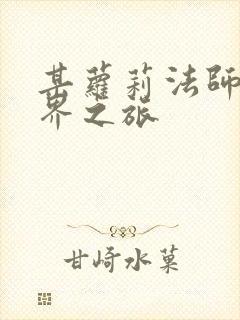 某蘿莉法師
界之旅
甘崎水菓